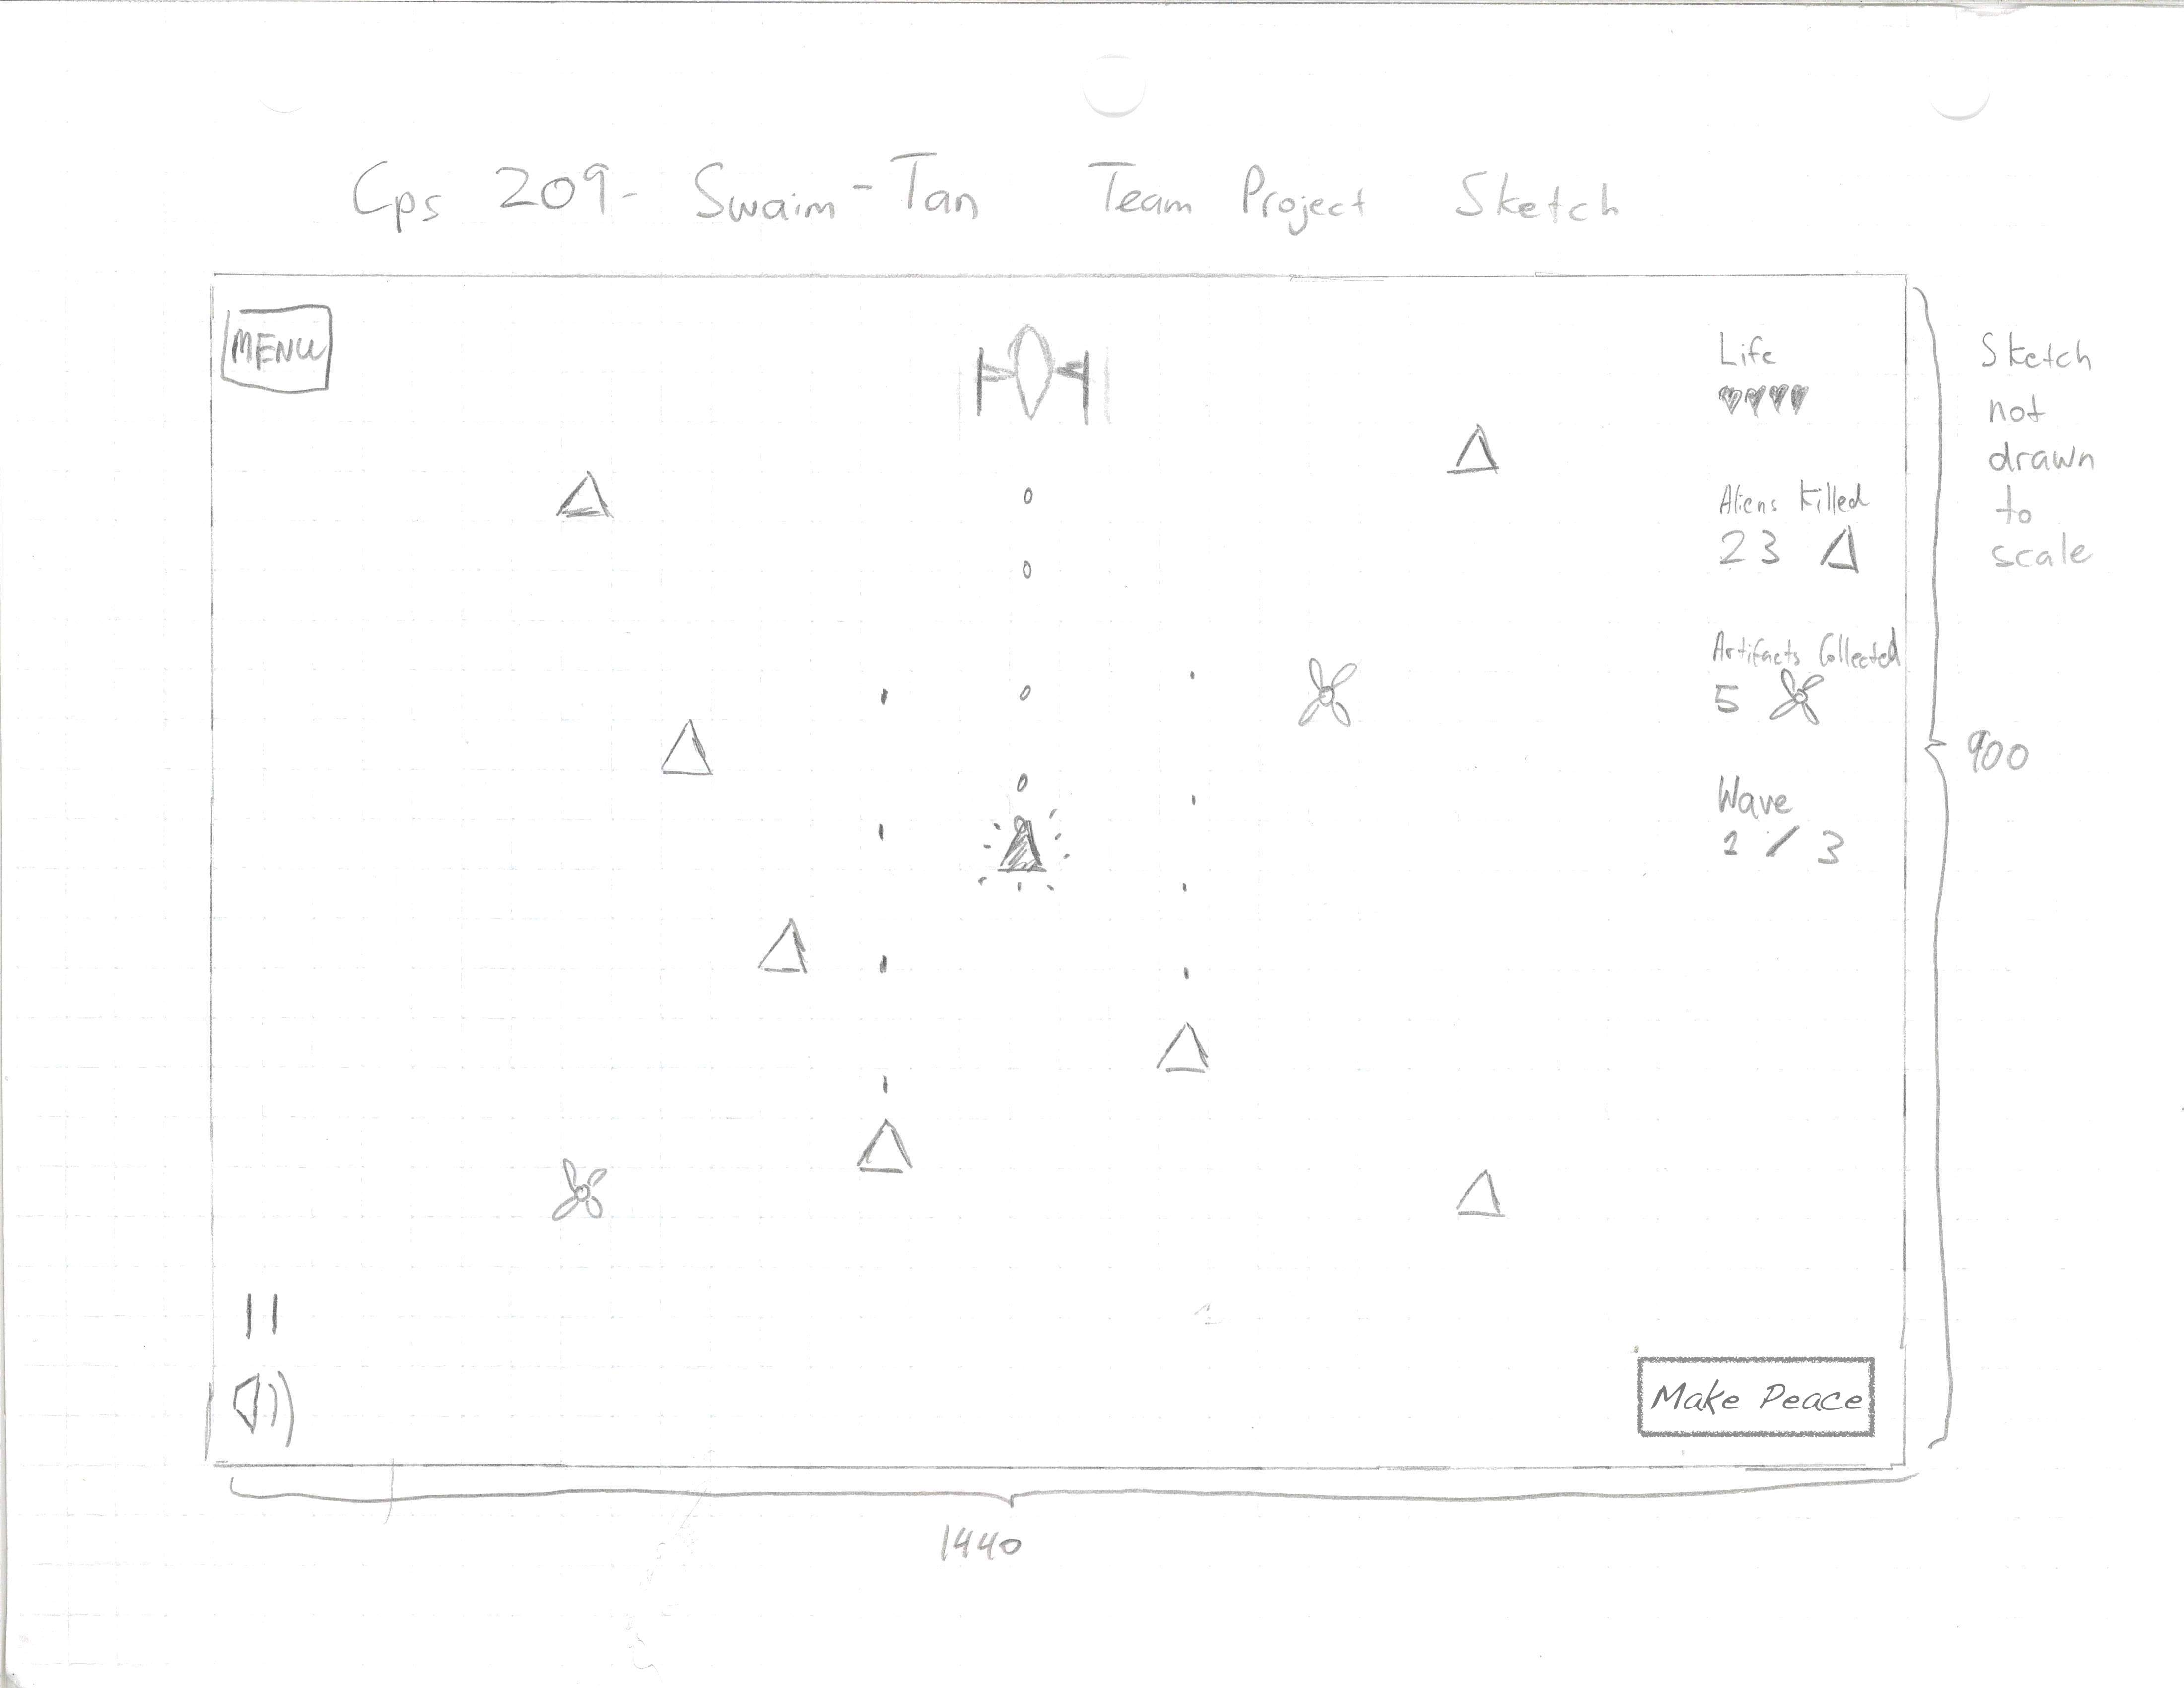 Cps 209- Swaim-Tan Team Project Sketch
MENU
Life
Aliens Killed
23
Artifacts Collected
5
Wave
1 / 3
Make Peace
Sketch
not
drawn
to
scale
900
1440